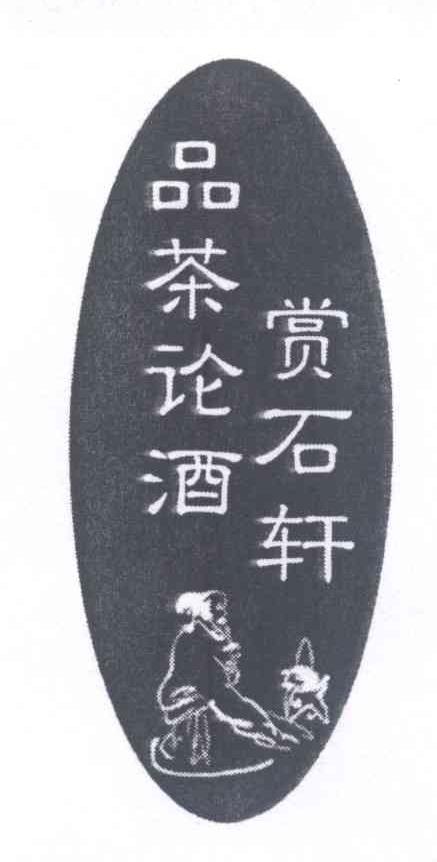 品茶论酒
赏石轩